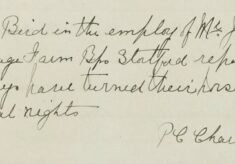 Bird in the employ of Mr. J
age Farm Bps Stotford repo
ys have turned their horse
al nights
PC Char